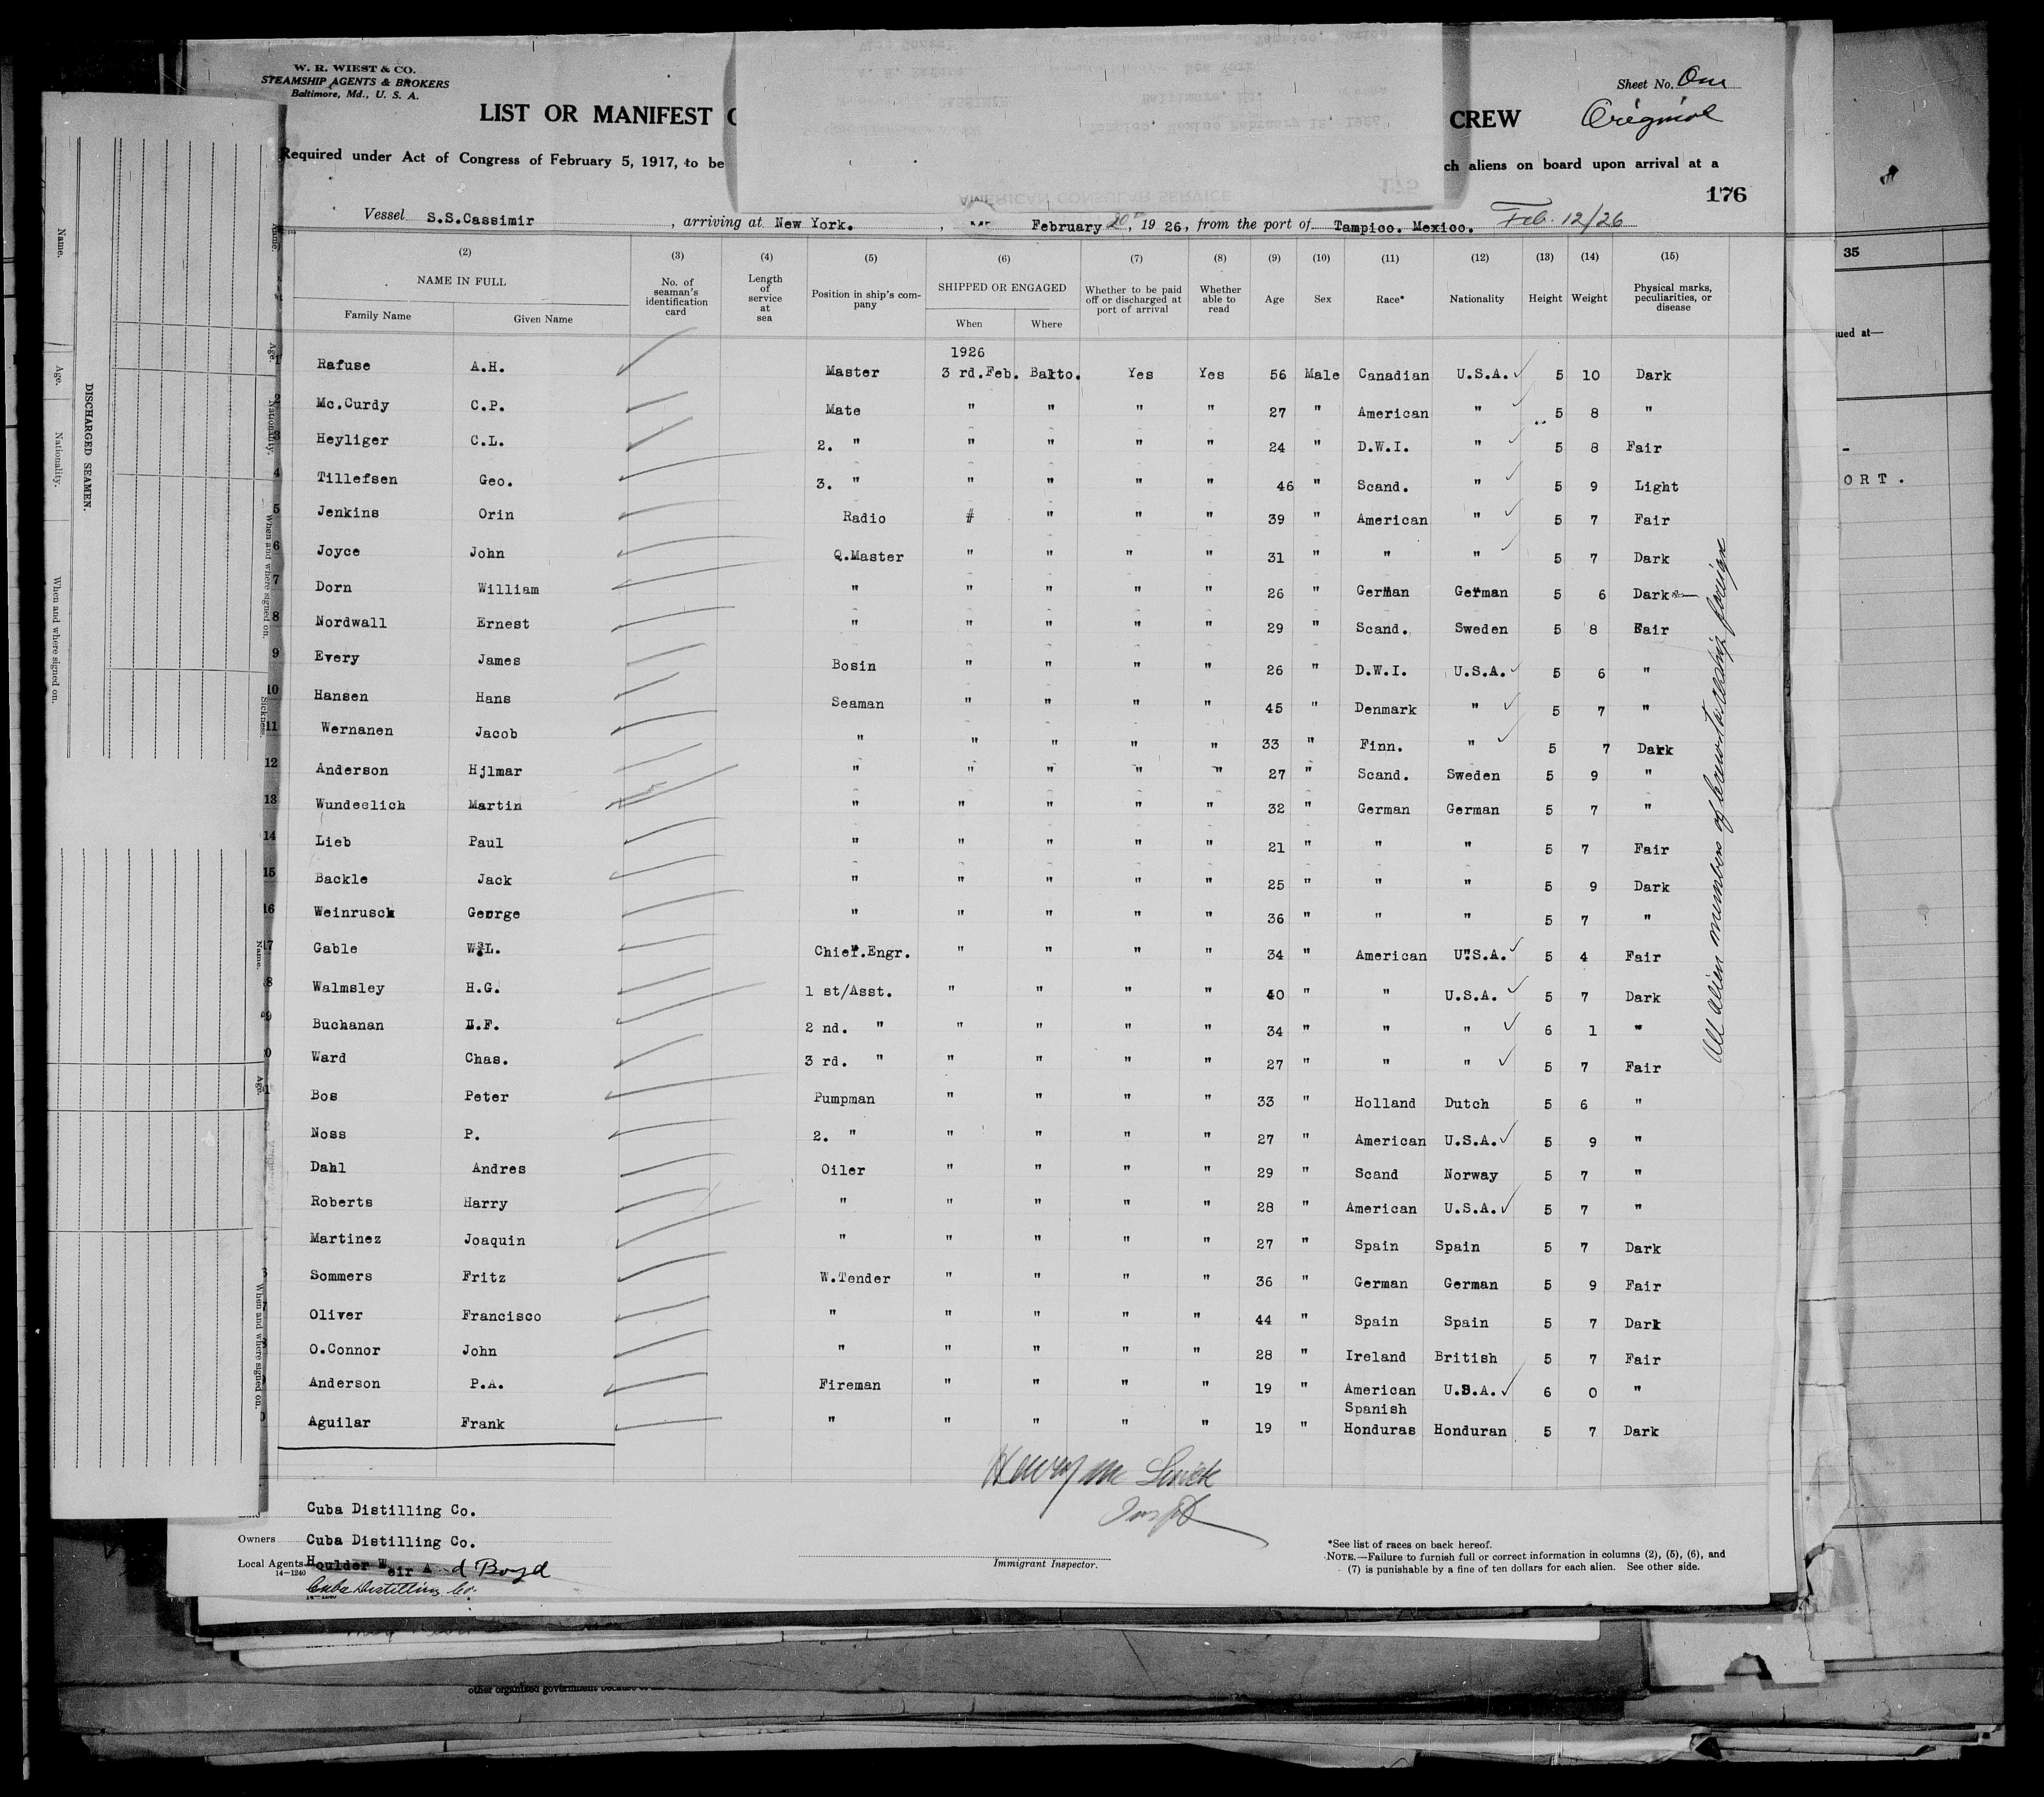 W. R. WIEST & CO.
STEAMSHIP AGENTS & BROKERS
Baltimore, Md., U. S. A.
Sheet No. One
Original
LIST OR MANIFEST CREW
Required under Act of Congress of February 5, 1917, to be ch aliens on board upon arrival at a
176
Vessel S.S.Cassimir, arriving at New York., February 20th, 1926, from the port of Tampico. Mexico. Feb. 12/26
(2) (3) (4) (5) (6) (7) (8) (9) (10) (11) (12) (13) (14) (15)
NAME IN FULL No. of seaman's identification card Length of service at sea Position in ship's company SHIPPED OR ENGAGED Whether to be paid off or discharged at port of arrival Whether able to read Age Sex Race* Nationality Height Weight Physical marks, peculiarities, or disease
Family Name Given Name When Where
1926
1 Rafuse A.H. Master 3 rd.Feb. Balto. Yes Yes 56 Male Canadian U.S.A. 5 10 Dark
2 Mc.Curdy C.P. Mate " " " " 27 " American " 5 8 "
3 Heyliger C.L. 2. " " " " " 24 " D.W.I. " 5 8 Fair
4 Tillefsen Geo. 3. " " " " " 46 " Scand. " 5 9 Light
5 Jenkins Orin Radio # " " " 39 " American " 5 7 Fair
6 Joyce John Q.Master " " " " 31 " " " 5 7 Dark
7 Dorn William " " " " " 26 " German German 5 6 Dark
8 Nordwall Ernest " " " " " 29 " Scand. Sweden 5 8 Fair
9 Every James Bosin " " " " 26 " D.W.I. U.S.A. 5 6 "
10 Hansen Hans Seaman " " " " 45 " Denmark " 5 7 "
11 Wernanen Jacob " " " " " 33 " Finn. " 5 7 Dark
12 Anderson Hjlmar " " " " " 27 " Scand. Sweden 5 9 "
13 Wundeelich Martin " " " " " 32 " German German 5 7 "
14 Lieb Paul " " " " " 21 " " " 5 7 Fair
15 Backle Jack " " " " " 25 " " " 5 9 Dark
16 Weinrusck George " " " " " 36 " " " 5 7 "
17 Gable W.L. Chief.Engr. " " " " 34 " American U.S.A. 5 4 Fair
8 Walmsley H.G. 1 st/Asst. " " " " 40 " " U.S.A. 5 7 Dark
9 Buchanan H.F. 2 nd. " " " " " 34 " " " 6 1 "
0 Ward Chas. 3 rd. " " " " " 27 " " " 5 7 Fair
1 Bos Peter Pumpman " " " " 33 " Holland Dutch 5 6 "
Noss P. 2. " " " " " 27 " American U.S.A. 5 9 "
Dahl Andres Oiler " " " " 29 " Scand Norway 5 7 "
Roberts Harry " " " " " 28 " American U.S.A. 5 7 "
Martinez Joaquin " " " " " 27 " Spain Spain 5 7 Dark
Sommers Fritz W.Tender " " " " 36 " German German 5 9 Fair
Oliver Francisco " " " " " 44 " Spain Spain 5 7 Dark
O.Connor John " " " " " 28 " Ireland British 5 7 Fair
Anderson P.A. Fireman " " " " 19 " American U.S.A. 6 0 "
Spanish
Aguilar Frank " " " " " 19 " Honduras Honduran 5 7 Dark
All alien members of crew to reship foreign
Cuba Distilling Co.
Owners Cuba Distilling Co.
Local Agents Houlder Weir And Boyd
14-1240
Cuba Distilling Co.
Immigrant Inspector.
*See list of races on back hereof.
NOTE.—Failure to furnish full or correct information in columns (2), (5), (6), and
(7) is punishable by a fine of ten dollars for each alien. See other side.
Name.
Age.
Nationality.
When and where signed on.
DISCHARGED SEAMEN.
Name.
Age.
Nationality.
When and where signed on.
Sickness.
Name.
Age.
When and where signed on.
AMERICAN CONSULAR SERVICE
175
35
ued at—
ORT.
other organized government because